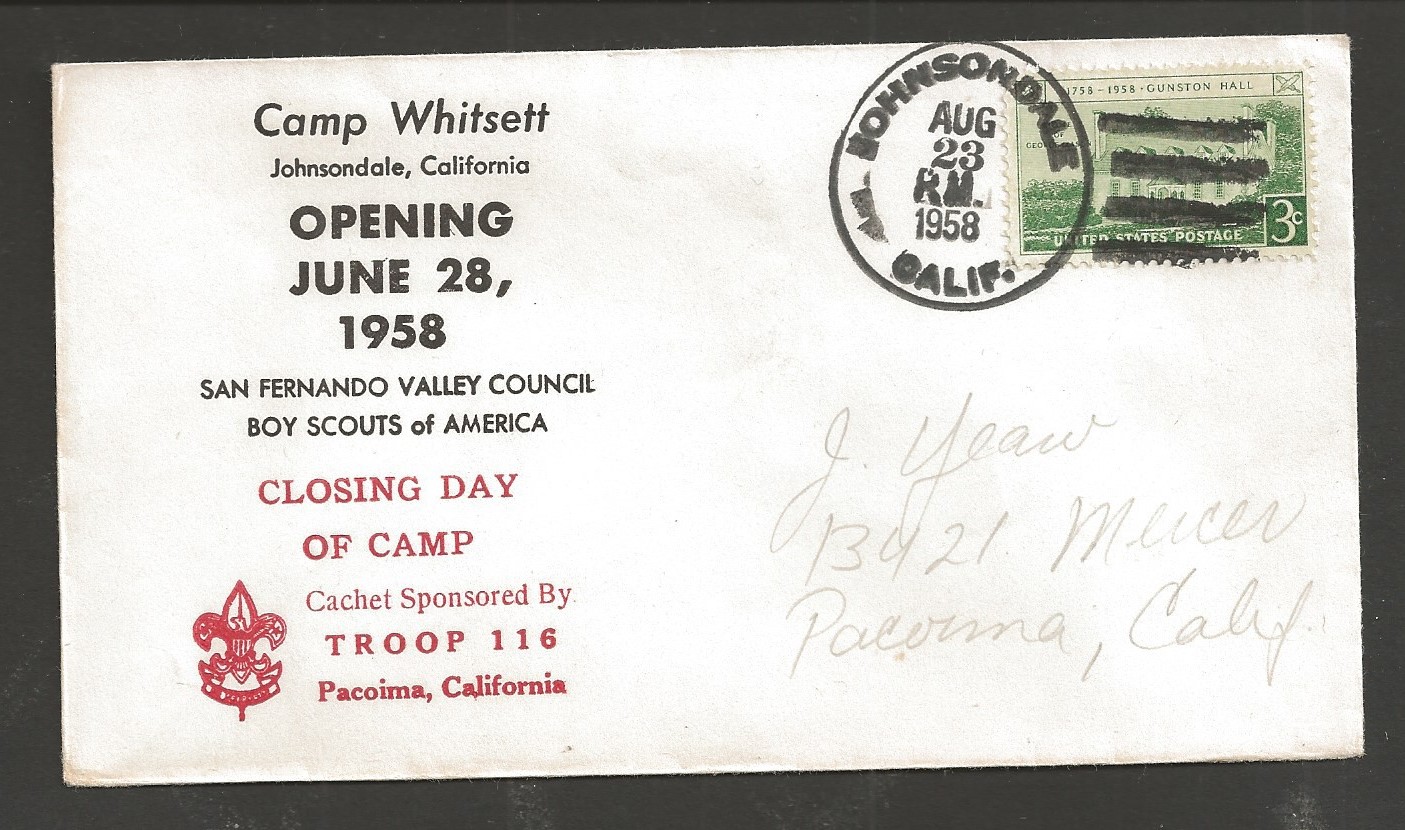 Camp Whitsett
Johnsondale, California
OPENING
JUNE 28,
1958
SAN FERNANDO VALLEY COUNCIL
BOY SCOUTS of AMERICA
CLOSING DAY
OF CAMP
Cachet Sponsored By
TROOP 116
Pacoima, California
JOHNSONDALE
AUG
23
P.M.
1958
CALIF.
1758-1958·GUNSTON HALL
3c
UNITED STATES POSTAGE
J. Yeaw
13421 Mercer
Pacoima, Calif.